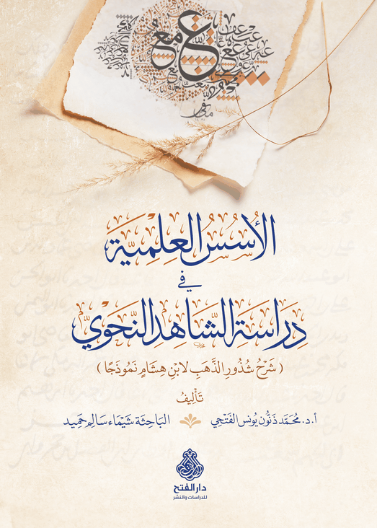 الأُسُسُ العِلْمِيَّة
في
دِرَاسَةِ الشَّاهِدِ النَّحْوِيّ
( شَرْحُ شُذُورِ الذَّهَبِ لِابْنِ هِشَامٍ نَمُوذَجًا )
تَأْلِيفُ
أ.د. مُحَمَّد ذَنُّون يُونس الفَتْحِي
البَاحِثَة شَيْمَاء سَالِم حَمِيد
دار الفتح
للدراسات والنشر